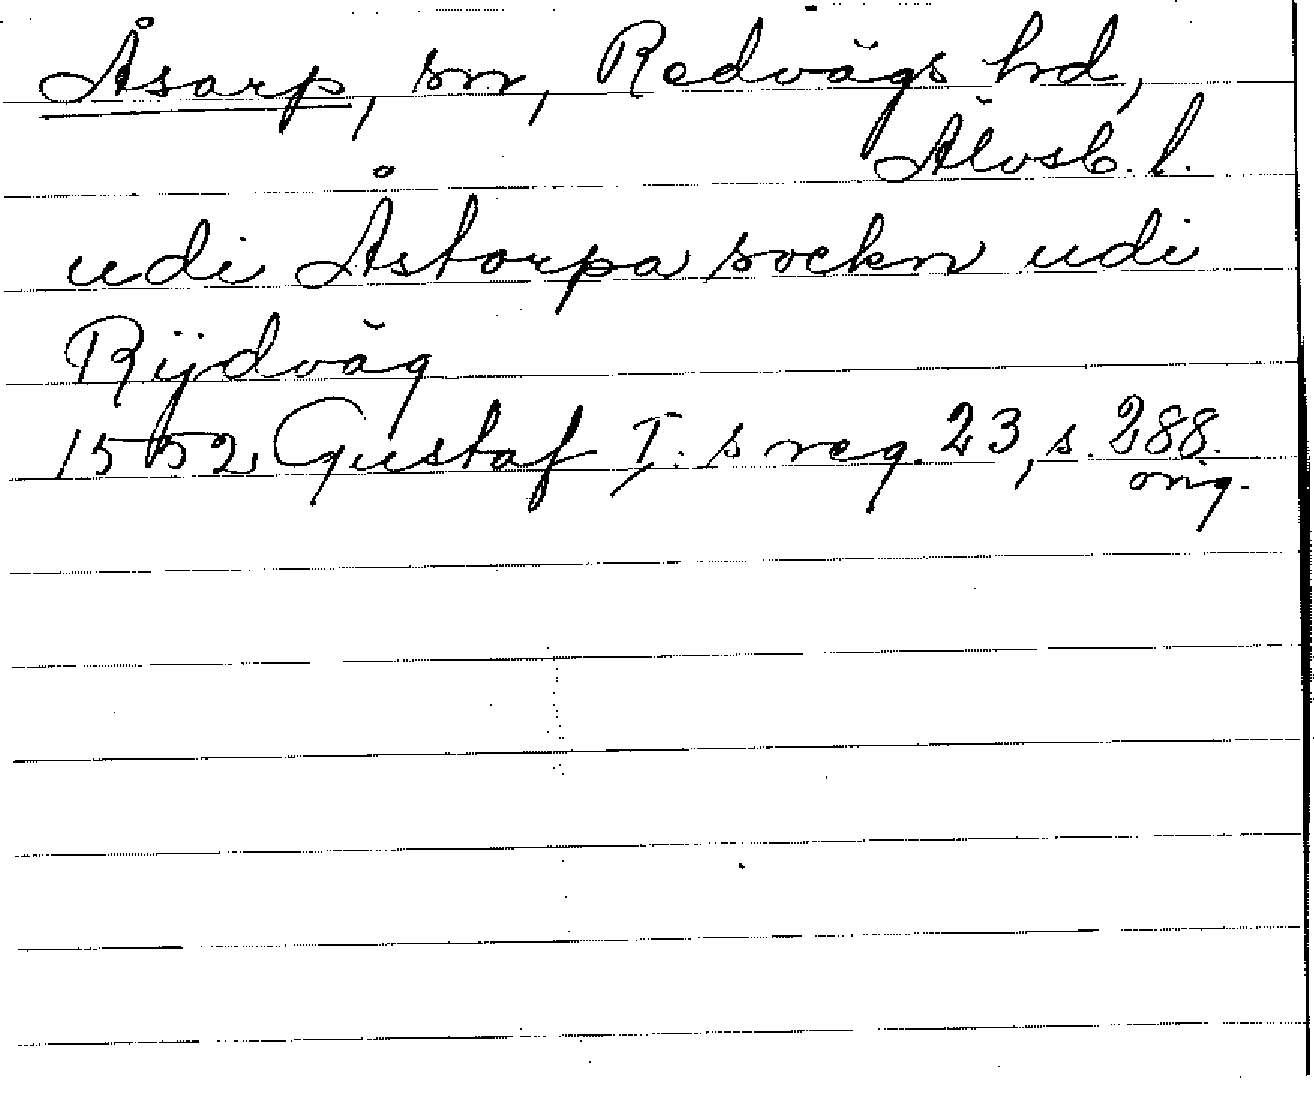 Åsarp, sn, Redvägs hd,
Älvsb. l.
udi Åstorpa sockn udi
Rijdväg
1552 Gustaf I:s reg. 23, s. 288.
orig.